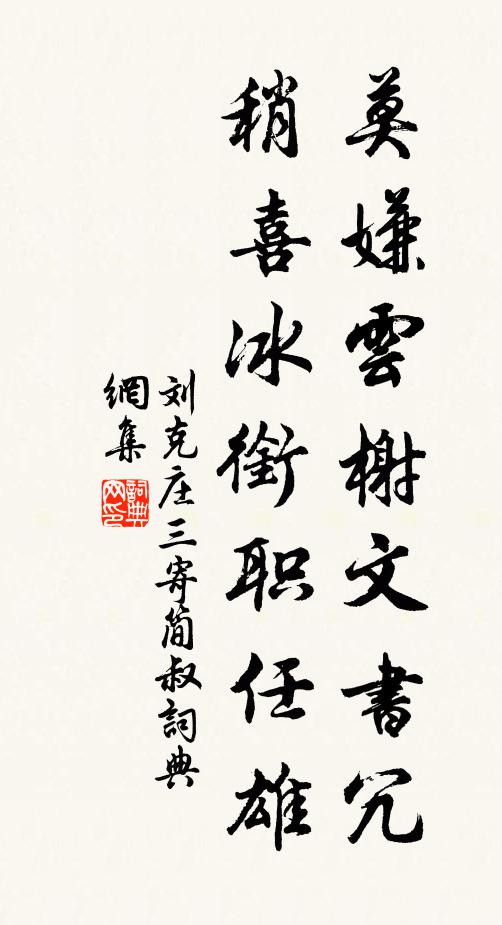 莫嫌雲榭文書冗
稍喜冰銜职任雄
刘克庄三寄简叔詞典
網集
詞典網印